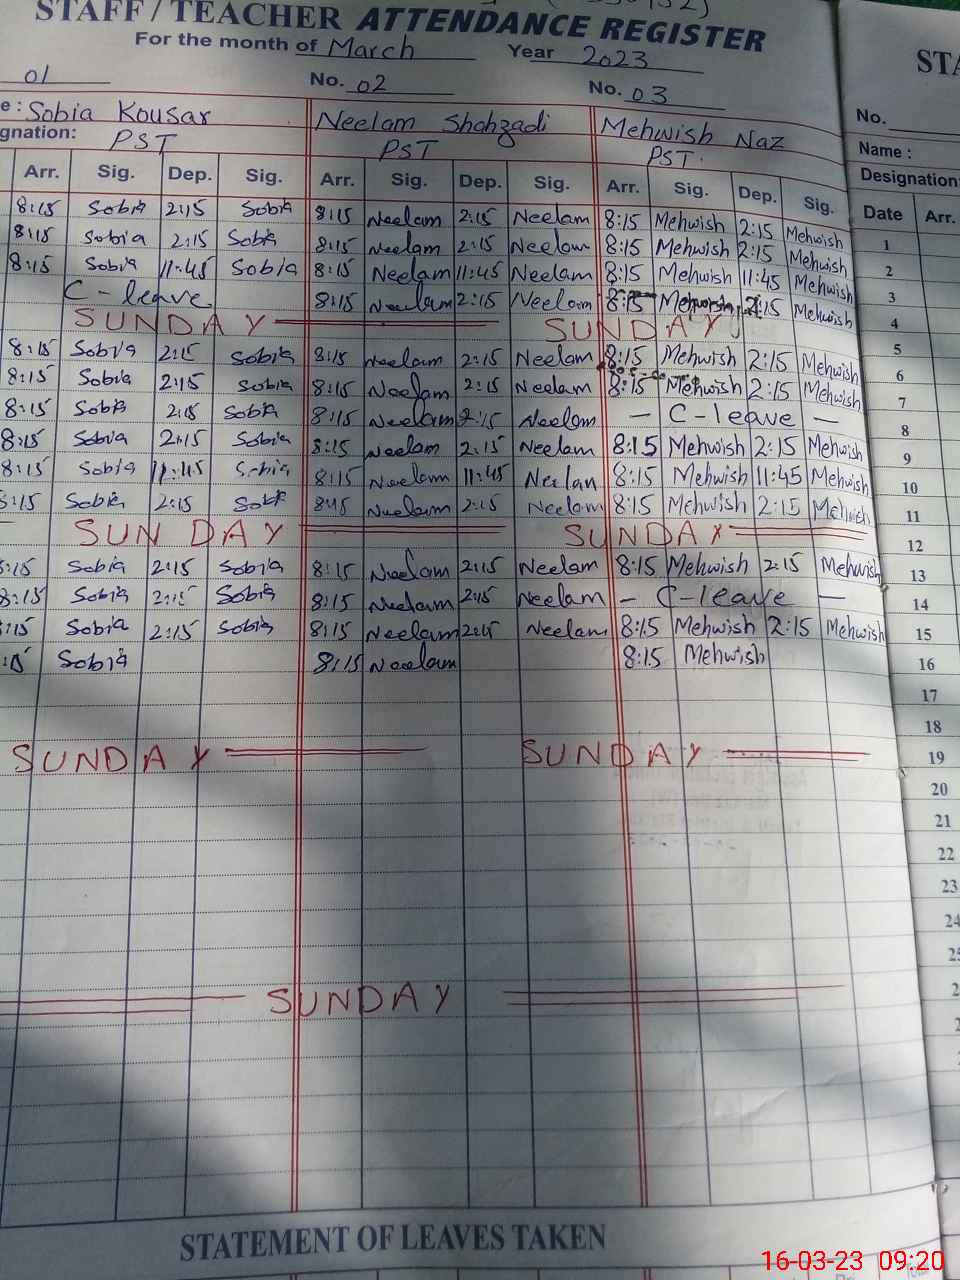 STAFF / TEACHER ATTENDANCE REGISTER
For the month of March Year 2023
01 No. 02 No. 03
e : Sobia Kousar Neelam Shahzadi Mehwish Naz
gnation: PST PST PST.
Arr. Sig. Dep. Sig. Arr. Sig. Dep. Sig. Arr. Sig. Dep. Sig.
8:15 Sobia 2:15 Sobia 8:15 Neelam 2:15 Neelam 8:15 Mehwish 2:15 Mehwish
8:15 Sobia 2:15 Sobia 8:15 Neelam 2:15 Neelam 8:15 Mehwish 2:15 Mehwish
8:15 Sobia 11:45 Sobia 8:15 Neelam 11:45 Neelam 8:15 Mehwish 11:45 Mehwish
C-leave 8:15 Neelam 2:15 Neelam 8:15 Mehwish 2:15 Mehwish
SUNDAY SUNDAY
8:15 Sobia 2:15 Sobia 8:15 Neelam 2:15 Neelam 8:15 Mehwish 2:15 Mehwish
8:15 Sobia 2:15 Sobia 8:15 Neelam 2:15 Neelam 8:15 Mehwish 2:15 Mehwish
8:15 Sobia 2:15 Sobia 8:15 Neelam 2:15 Neelam - C-leave -
8:15 Sobia 2:15 Sobia 8:15 Neelam 2:15 Neelam 8:15 Mehwish 2:15 Mehwish
8:15 Sobia 11:45 Sobia 8:15 Neelam 11:45 Neelam 8:15 Mehwish 11:45 Mehwish
8:15 Sobia 2:15 Sobia 8:15 Neelam 2:15 Neelam 8:15 Mehwish 2:15 Mehwish
SUNDAY SUNDAY
8:15 Sobia 2:15 Sobia 8:15 Neelam 2:15 Neelam 8:15 Mehwish 2:15 Mehwish
8:15 Sobia 2:15 Sobia 8:15 Neelam 2:15 Neelam - C-leave -
:15 Sobia 2:15 Sobia 8:15 Neelam 2:15 Neelam 8:15 Mehwish 2:15 Mehwish
:15 Sobia 8:15 Neelam 8:15 Mehwish
SUNDAY SUNDAY
SUNDAY
STATEMENT OF LEAVES TAKEN
STA
No.
Name :
Designation:
Date Arr.
1
2
3
4
5
6
7
8
9
10
11
12
13
14
15
16
17
18
19
20
21
22
23
24
25
2
2
16-03-23 09:20